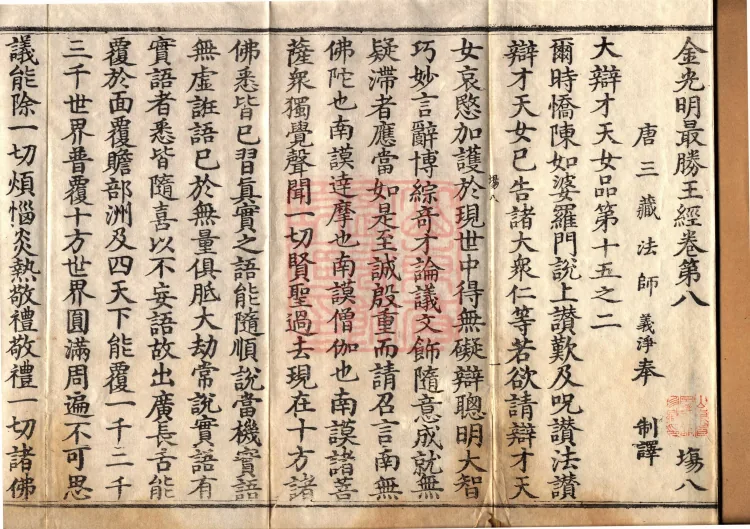 金光明最勝王經卷第八 塲八
唐三藏法師義淨奉 制譯
大辯才天女品第十五之二
爾時憍陳如婆羅門說上讃歎及呪讃法讃
辯才天女已告諸大衆仁等若欲請辯才天
塲八
女哀愍加護於現世中得無礙辯聰明大智
巧妙言辭博綜奇才論議文飾隨意成就無
疑滯者應當如是至誠殷重而請召言南無
佛陀也南謨達摩也南謨僧伽也南謨諸菩
薩衆獨覺聲聞一切賢聖過去現在十方諸
佛悉皆已習真實之語能隨順說當機實語
無虛誑語已於無量俱胝大劫常說實語有
實語者悉皆隨喜以不妄語故出廣長舌能
覆於面覆贍部洲及四天下能覆一千二千
三千世界普覆十方世界圓滿周遍不可思
議能除一切煩惱炎熱敬禮敬禮一切諸佛